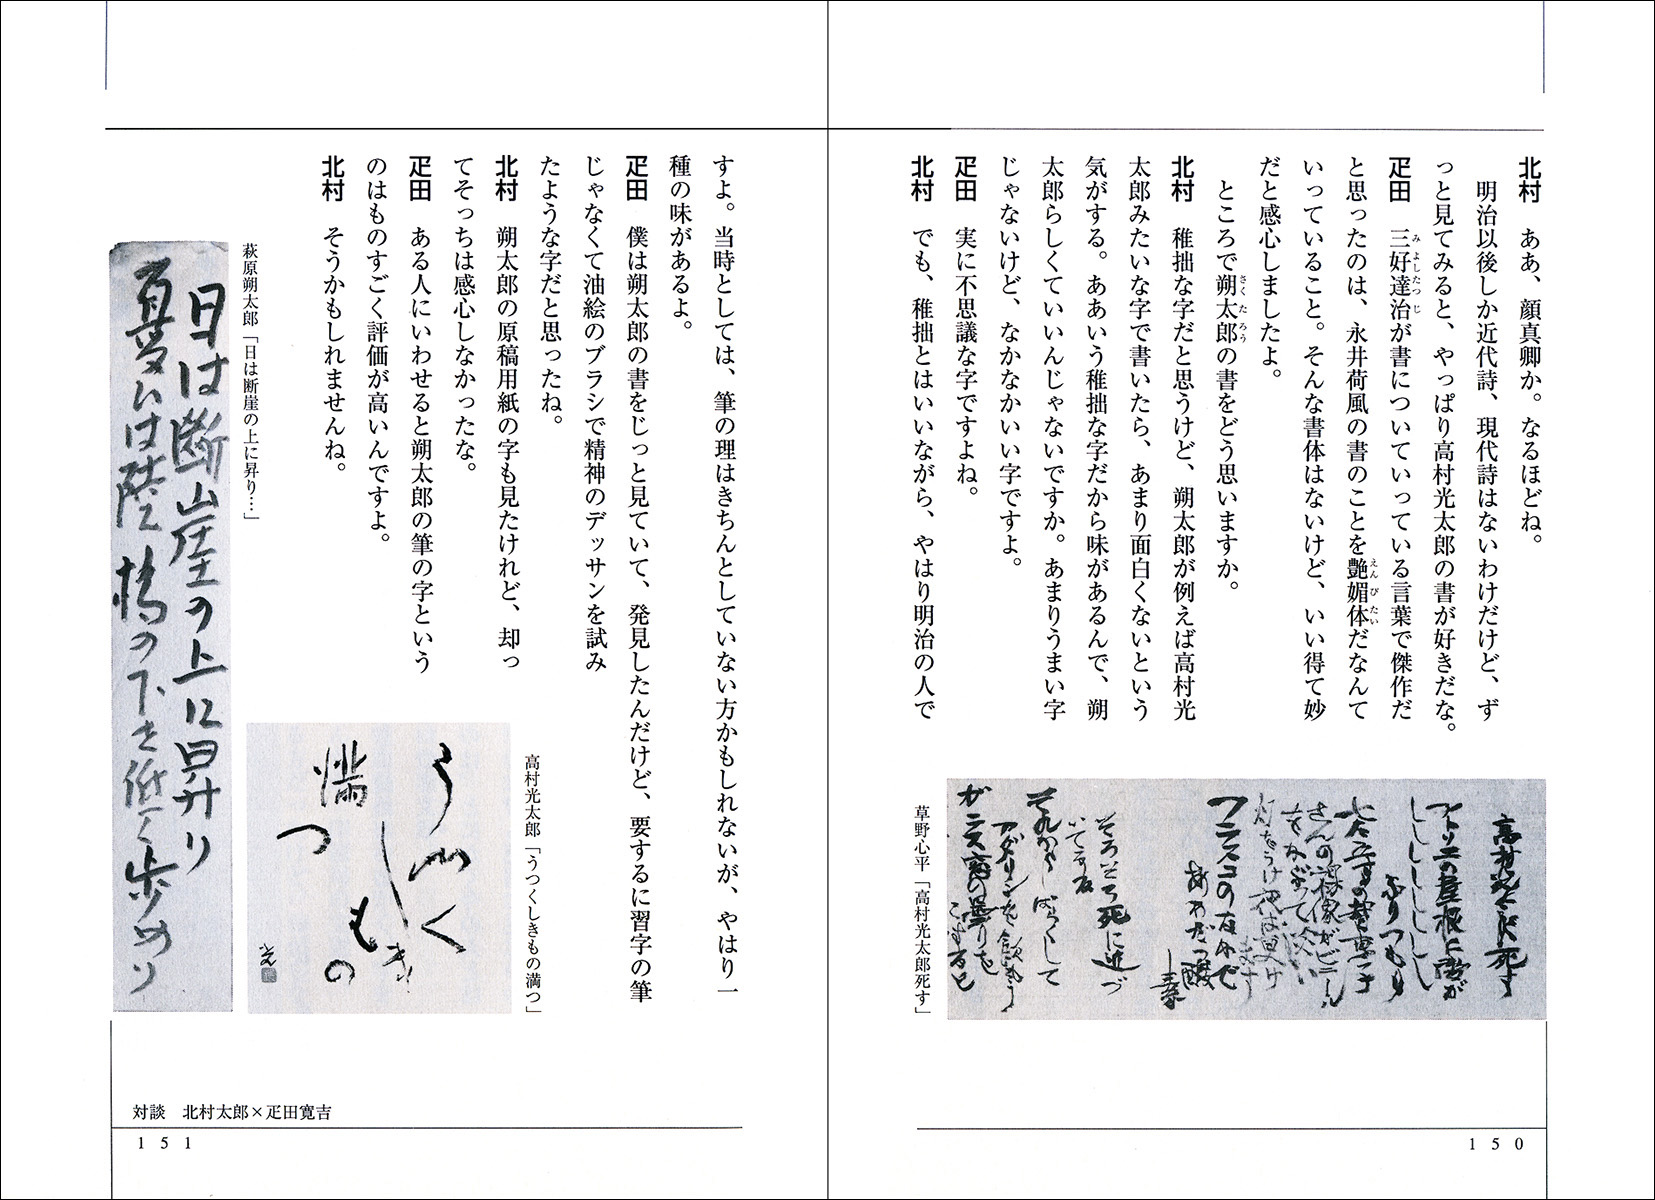 北村　ああ、顔真卿か。なるほどね。
明治以後しか近代詩、現代詩はないわけだけど、ず
っと見てみると、やっぱり高村光太郎の書が好きだな。
疋田　三好達治が書についていっている言葉で傑作だ
と思ったのは、永井荷風の書のことを艶媚体だなんて
いっていること。そんな書体はないけど、いい得て妙
だと感心しましたよ。
ところで朔太郎の書をどう思いますか。
北村　稚拙な字だと思うけど、朔太郎が例えば高村光
太郎みたいな字で書いたら、あまり面白くないという
気がする。ああいう稚拙な字だから味があるんで、朔
太郎らしくていいんじゃないですか。あまりうまい字
じゃないけど、なかなかいい字ですよ。
疋田　実に不思議な字ですよね。
北村　でも、稚拙とはいいながら、やはり明治の人で
高村光太郎死す
アトリエの屋根に雪が
ししししししし
ふりつもり
草野心平「高村光太郎死す」
150
すよ。当時としては、筆の理はきちんとしていない方かもしれないが、やはり一
種の味があるよ。
疋田　僕は朔太郎の書をじっと見ていて、発見したんだけど、要するに習字の筆
じゃなくて油絵のブラシで精神のデッサンを試み
たような字だと思ったね。
北村　朔太郎の原稿用紙の字も見たけれど、却っ
てそっちは感心しなかったな。
疋田　ある人にいわせると朔太郎の筆の字という
のはものすごく評価が高いんですよ。
北村　そうかもしれませんね。
高村光太郎「うつくしきもの満つ」
うつくしきもの
満つ
光
萩原朔太郎「日は断崖の上に昇り…」
日は斷崖の上に昇り
憂ひは陸橋の下を低く歩めり
対談　北村太郎×疋田寛吉
151